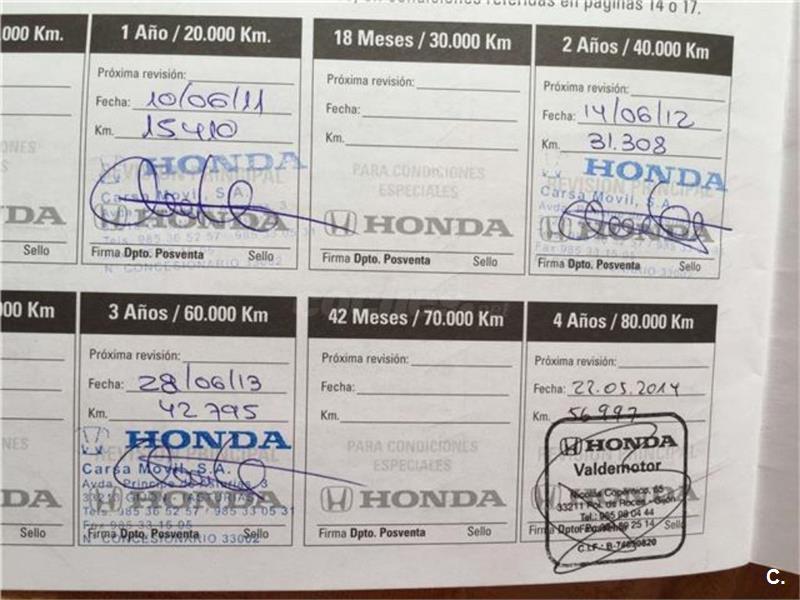 en condiciones referidas en páginas 14 o 17.
000 Km.
1 Año / 20.000 Km.
Próxima revisión:
Fecha: 10/06/11
Km. 15410
HONDA
REVISIÓN PRINCIPAL
Carsa Movil, S.A.
HONDA
Tels. 985 36 52 57 - 985 33 05 31
Firma Dpto. Posventa Sello
Nº CONCESIONARIO 33002
18 Meses / 30.000 Km
Próxima revisión:
Fecha:
Km.
PARA CONDICIONES
ESPECIALES
HONDA
Firma Dpto. Posventa Sello
2 Años / 40.000 Km
Próxima revisión:
Fecha: 14/06/12
Km. 31.308
HONDA
REVISIÓN PRINCIPAL
Carsa Movil, S.A.
Avda.
HONDA
Fax 985 33 15 95
Firma Dpto. Posventa Sello
CONCESIONARIO 33002
NES
DA
Sello
000 Km
3 Años / 60.000 Km
Próxima revisión:
Fecha: 28/06/13
Km. 42795
HONDA
REVISIÓN PRINCIPAL
Carsa Movil, S.A.
Avda. Principe de Asturias, 3
HONDA
Tels. 985 36 52 57 - 985 33 05 31
Fax 985 33 15 95
Firma Dpto. Posventa Sello
Nº CONCESIONARIO 33002
42 Meses / 70.000 Km
Próxima revisión:
Fecha:
Km.
PARA CONDICIONES
ESPECIALES
HONDA
Firma Dpto. Posventa Sello
4 Años / 80.000 Km
Próxima revisión:
Fecha: 22.05.2014
Km. 56997
HONDA
Valdemotor
Nicolás Copérnico, 65
33211 Pol. de Roces - Gijón
Firma Dpto. Sello
NES
DA
Sello
C.